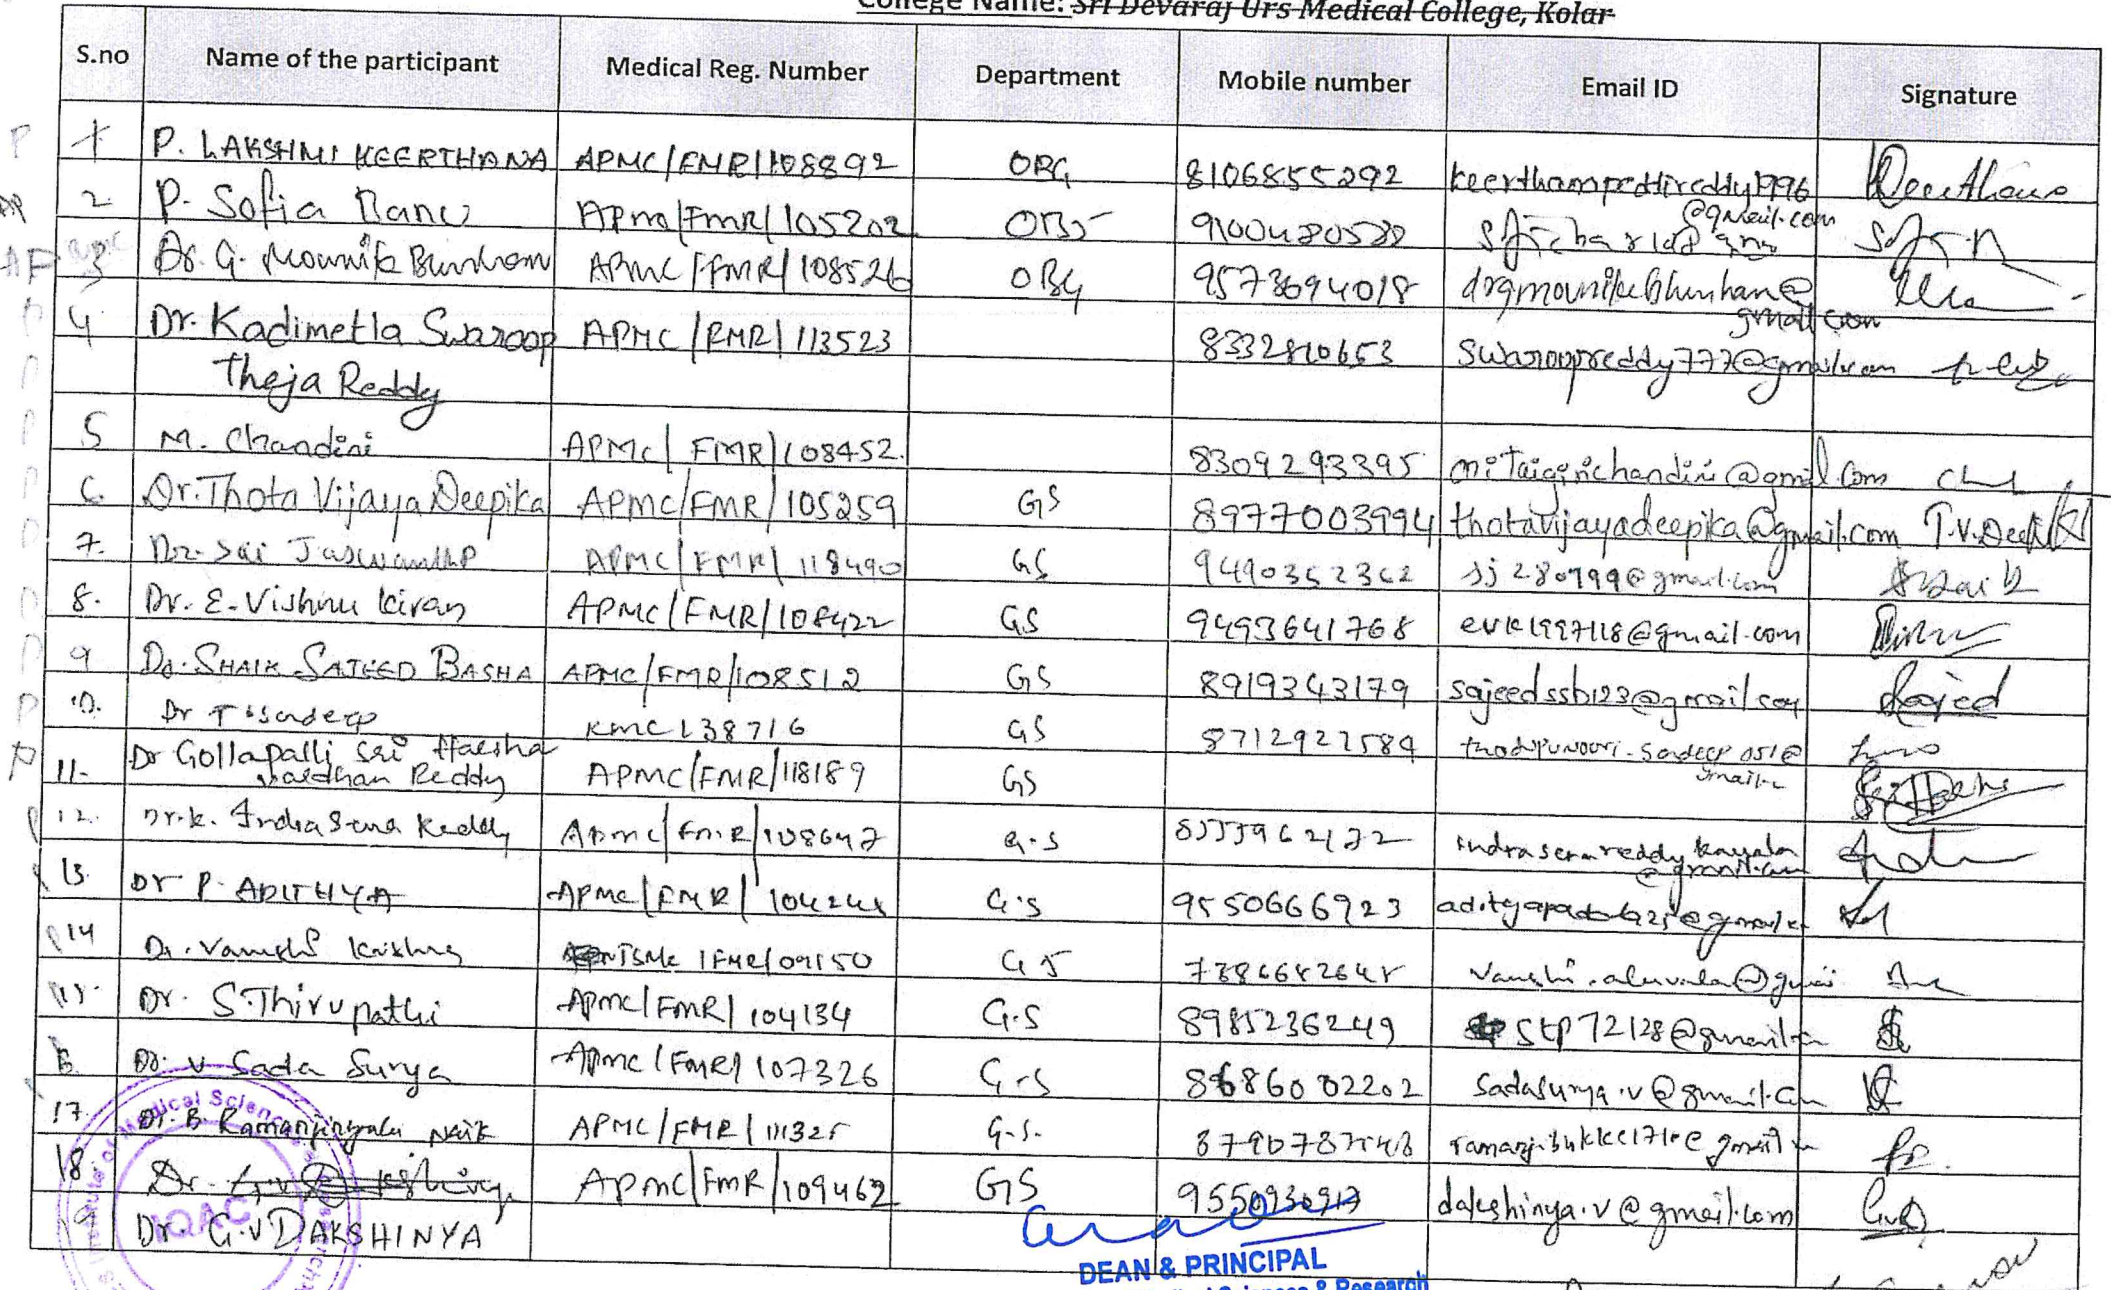 College Name: Sri Devaraj Urs Medical College, Kolar
S.no Name of the participant Medical Reg. Number Department Mobile number Email ID Signature
1 P. LAKSHMI KEERTHANA APMC/FMR/108892 OBG 8106855292 keerthanapeddireddy1996
@gmail.com
2. P. Sofia Banu APMC/FMR/105202 OBG 9100480580
3 Dr. G. Mounika Bhushan APMC/FMR/108526 OBG 9573694018 drgmounikabhushan@
gmail.com
4 Dr. Kadimetla Swaroop APMC/FMR/113523 8332810653 swaroopreddy777@gmail.com
Theja Reddy
5 M. Chandini APMC/FMR/108452 8309293395 chandini@gmail.com
6. Dr. Thota Vijaya Deepika APMC/FMR/105259 GS 8977003994 thotavijayadeepika@gmail.com T.V.Deepika
7. Dr. Sai Jaswanth P APMC/FMR/118490 GS 9490352362 sj280799@gmail.com
8. Dr. E. Vishnu Kiran APMC/FMR/108422 GS 9493641768 evk1997118@gmail.com
9 Dr. SHAIK SAJEED BASHA APMC/FMR/108512 GS 8919343179 sajeedssb123@gmail.com Sajeed
10. Dr T. Sandeep KMC 138716 GS 8712927584 thodupunoori.sandeep051@
gmail.c
Dr Gollapalli Sri Harsha
11. Vardhan Reddy APMC/FMR/118189 GS
12. Dr. K. Indra Sena Reddy APMC/FMR/108647 G.S indrasenareddy.kayala
@gmail.com
13 Dr P. ADITHYA APMC/FMR/ G.S 9550666923
14 Dr. Vamshi Krishna TSMC/FMR/09150 GS vamshi.aluvala@gmai
15. Dr. S. Thirupathi APMC/FMR/104134 G.S 8985236249 stp72128@gmail.c
Dr. V. Sada Surya APMC/FMR/107326 G.S 8686002202 sadasurya.v@gmail.com
17 Dr. B. Ramanjinyalu Naik APMC/FMR/111325 G.S.
18 Dr. APMC/FMR/109462 GS 9550930917 dakshinya.v@gmail.com
19 Dr G.V DAKSHINYA
IQAC
DEAN & PRINCIPAL
Sciences & Research